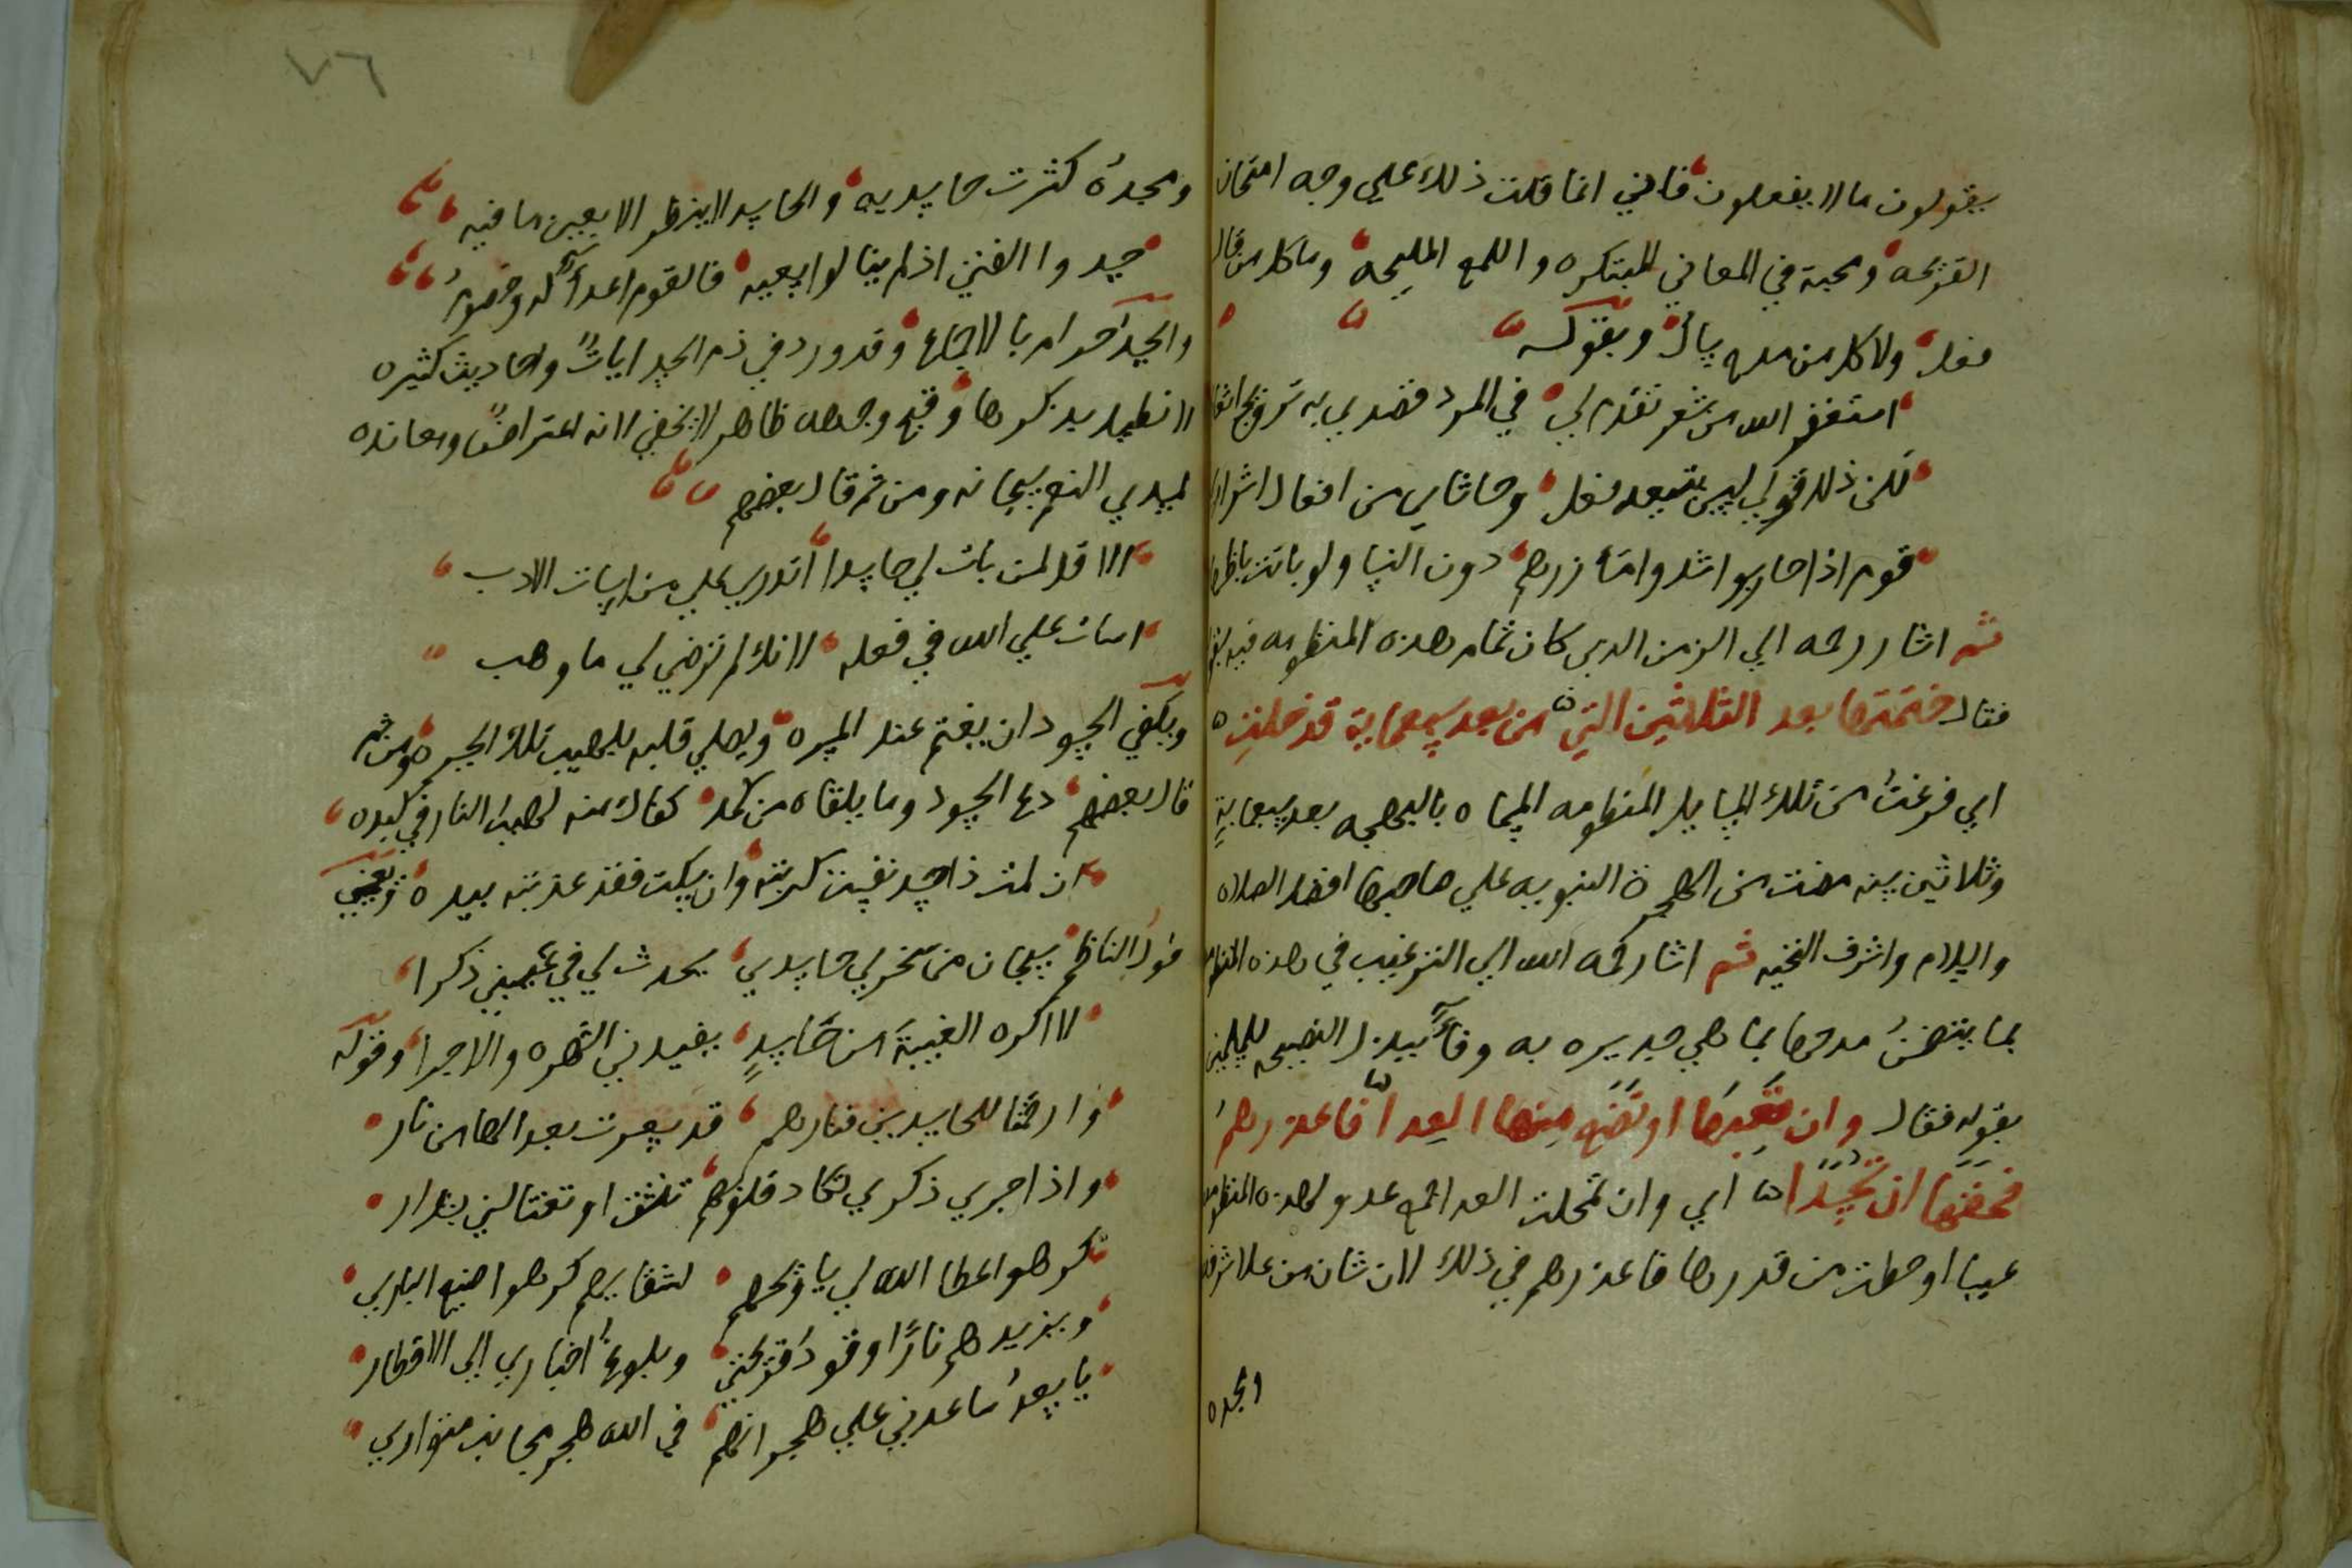 يقولون مالا يفعلون فاني انما قلت ذلك علي وجه امتحان
القريحه ومحبة في المعاني المبتكره واللمع المليحه وما كل من قال
فعل ولا كل من مدح سال وبقوله
استغفر الله من شعر تقدم لي في المرد قصدي به ترويج
لكن ذلك قولي ليس يتبعه فعل وحاشاي من افعال اشرار
قوم اذا حاربوا شدوا مآزرهم دون النسا ولو باتت باطهار
ثم اشار رحمه الي الزمن الذي كان تمام هذه المنظومه فيه
فقال ختمتها بعد الثلاثين التي من بعد سبعماية قد خلت
اي فرغت من تلك المسايل المنظومه المسماه بالبهجه بعد سبعماية
وثلاثين سنه مضت من الهجرة النبويه علي صاحبها افضل الصلاه
والسلام واشرف التحيه ثم اشار رحمه الله الي الترغيب في هذه المنظومه
بما يتضمن مدحها بما هي جديره به وفاً ببيذل النصيحه للمسلمين
بقوله فقال وان تعبها او تضع منها العدا فاعذرهم
فحقها ان تحسدا اي وان تمحلت العدا جمع عدو لهذه المنظومه
عيبا او حطت من قدرها فاعذرهم في ذلك لان شان من علا شرفه
ومجده
٧٦
ومجده كثرت حاسديه والحاسد لا ينظر الا بعين ما فيه
حسدوا الفتي اذ لم ينالوا سعيه فالقوم اعدآ له وخصوم
والحسد حرام بالاجماع وقد ورد في ذم الحسد ايات واحاديث كثيره
لا نطيل بذكرها وقبح وجهه ظاهر لا يخفي لانه اعتراض ومعانده
لمسدي النعم سبحانه ومن ثم قال بعضهم
الا قل لمن بات لي حاسدا اتدري علي من اسات الادب
اسات علي الله في فعله لانك لم ترضي لي ما وهب
ويكفي الحسود ان يغتم عند المسره ويصلي قلبه بلهيب تلك الحسره ومن ثم
قال بعضهم دع الحسود وما يلقاه من كمد كفاك منه لهيب النار في كبده
ان لمت ذا حسد نفست كربته وان سكت فقد عذبته بيده
قول الناظم سبحان من سخر لي حاسدي يحدث لي في غيبتي ذكرا
لا اكره الغيبة من حاسد يفيدني الشهره والاجرا وقوله
وارحمتا للحاسدين فنارهم قد سعرت بعد الهامن نار
واذا جري ذكري تكاد قلوبهم تنشق او تغتالني بشرار
كرهوا عطا الله لي يا ويحهم لشقايهم كرهوا صنيع الباري
ويزيدهم نارا وقود قريحتي وبلوغ اخباري الي الاقطار
يا سعد ساعدني علي هجرانهم في الله هجر مجانب متواري